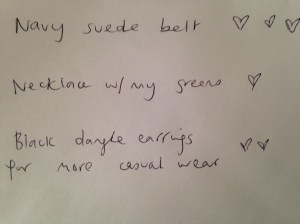 Navy suede belt ♡ ♡ ♡
Necklace w/ my greens ♡
Black dangle earrings ♡ ♡
for more casual wear